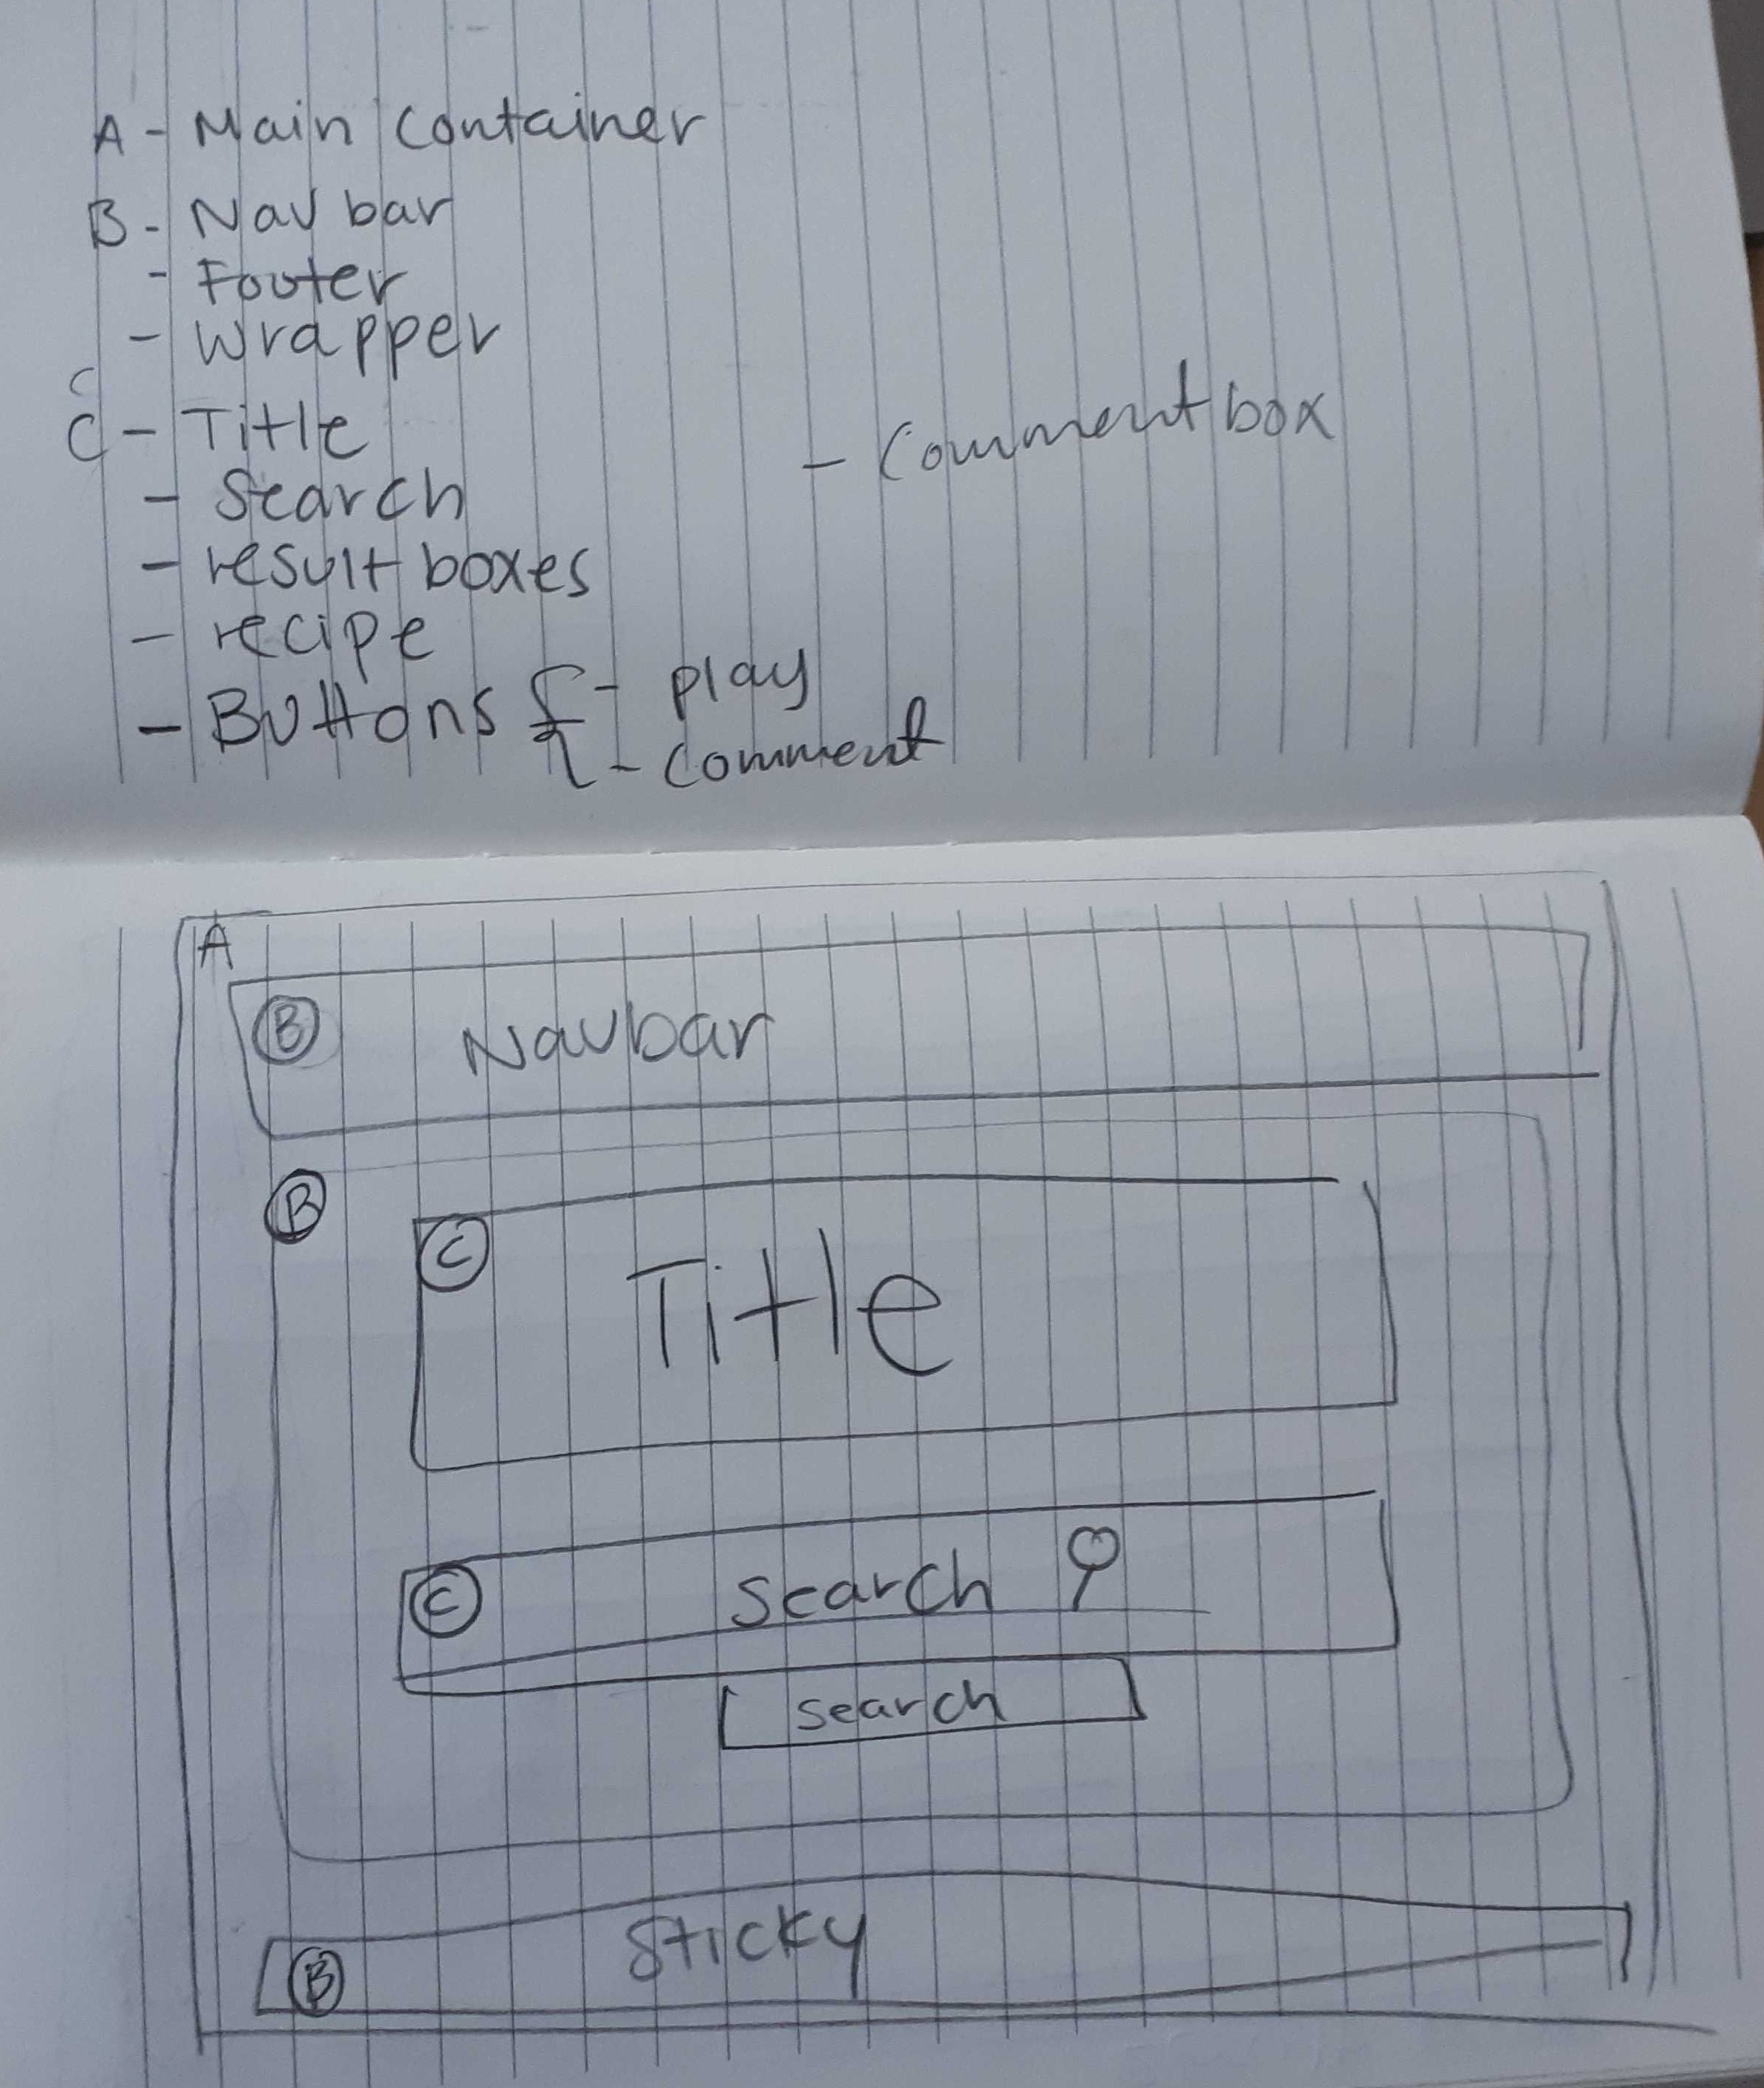 A - Main container
B - Nav bar
- Footer
- Wrapper
C
C - Title
- Comment box
- Search
- result boxes
- recipe
- Buttons { - play
- comment
A
B Navbar
B
C Title
C Search
search
B Sticky